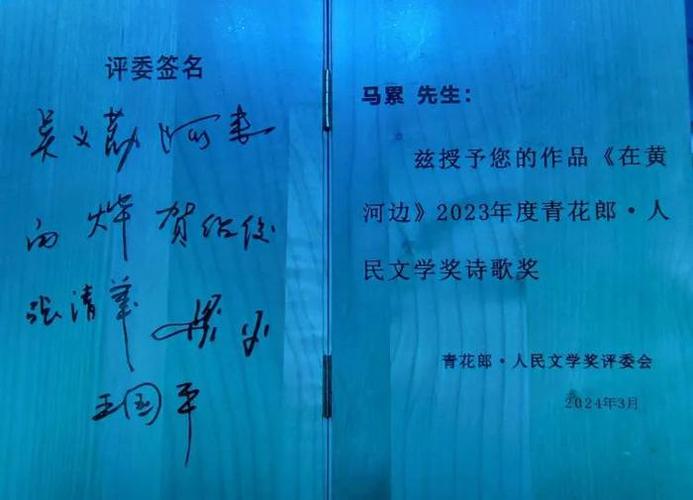 评委签名
吴义勤 阿来
白烨 贺绍俊
张清华 梁
王国平
马累 先生：
兹授予您的作品《在黄
河边》2023年度青花郎·人
民文学奖诗歌奖
青花郎·人民文学奖评委会
2024年3月